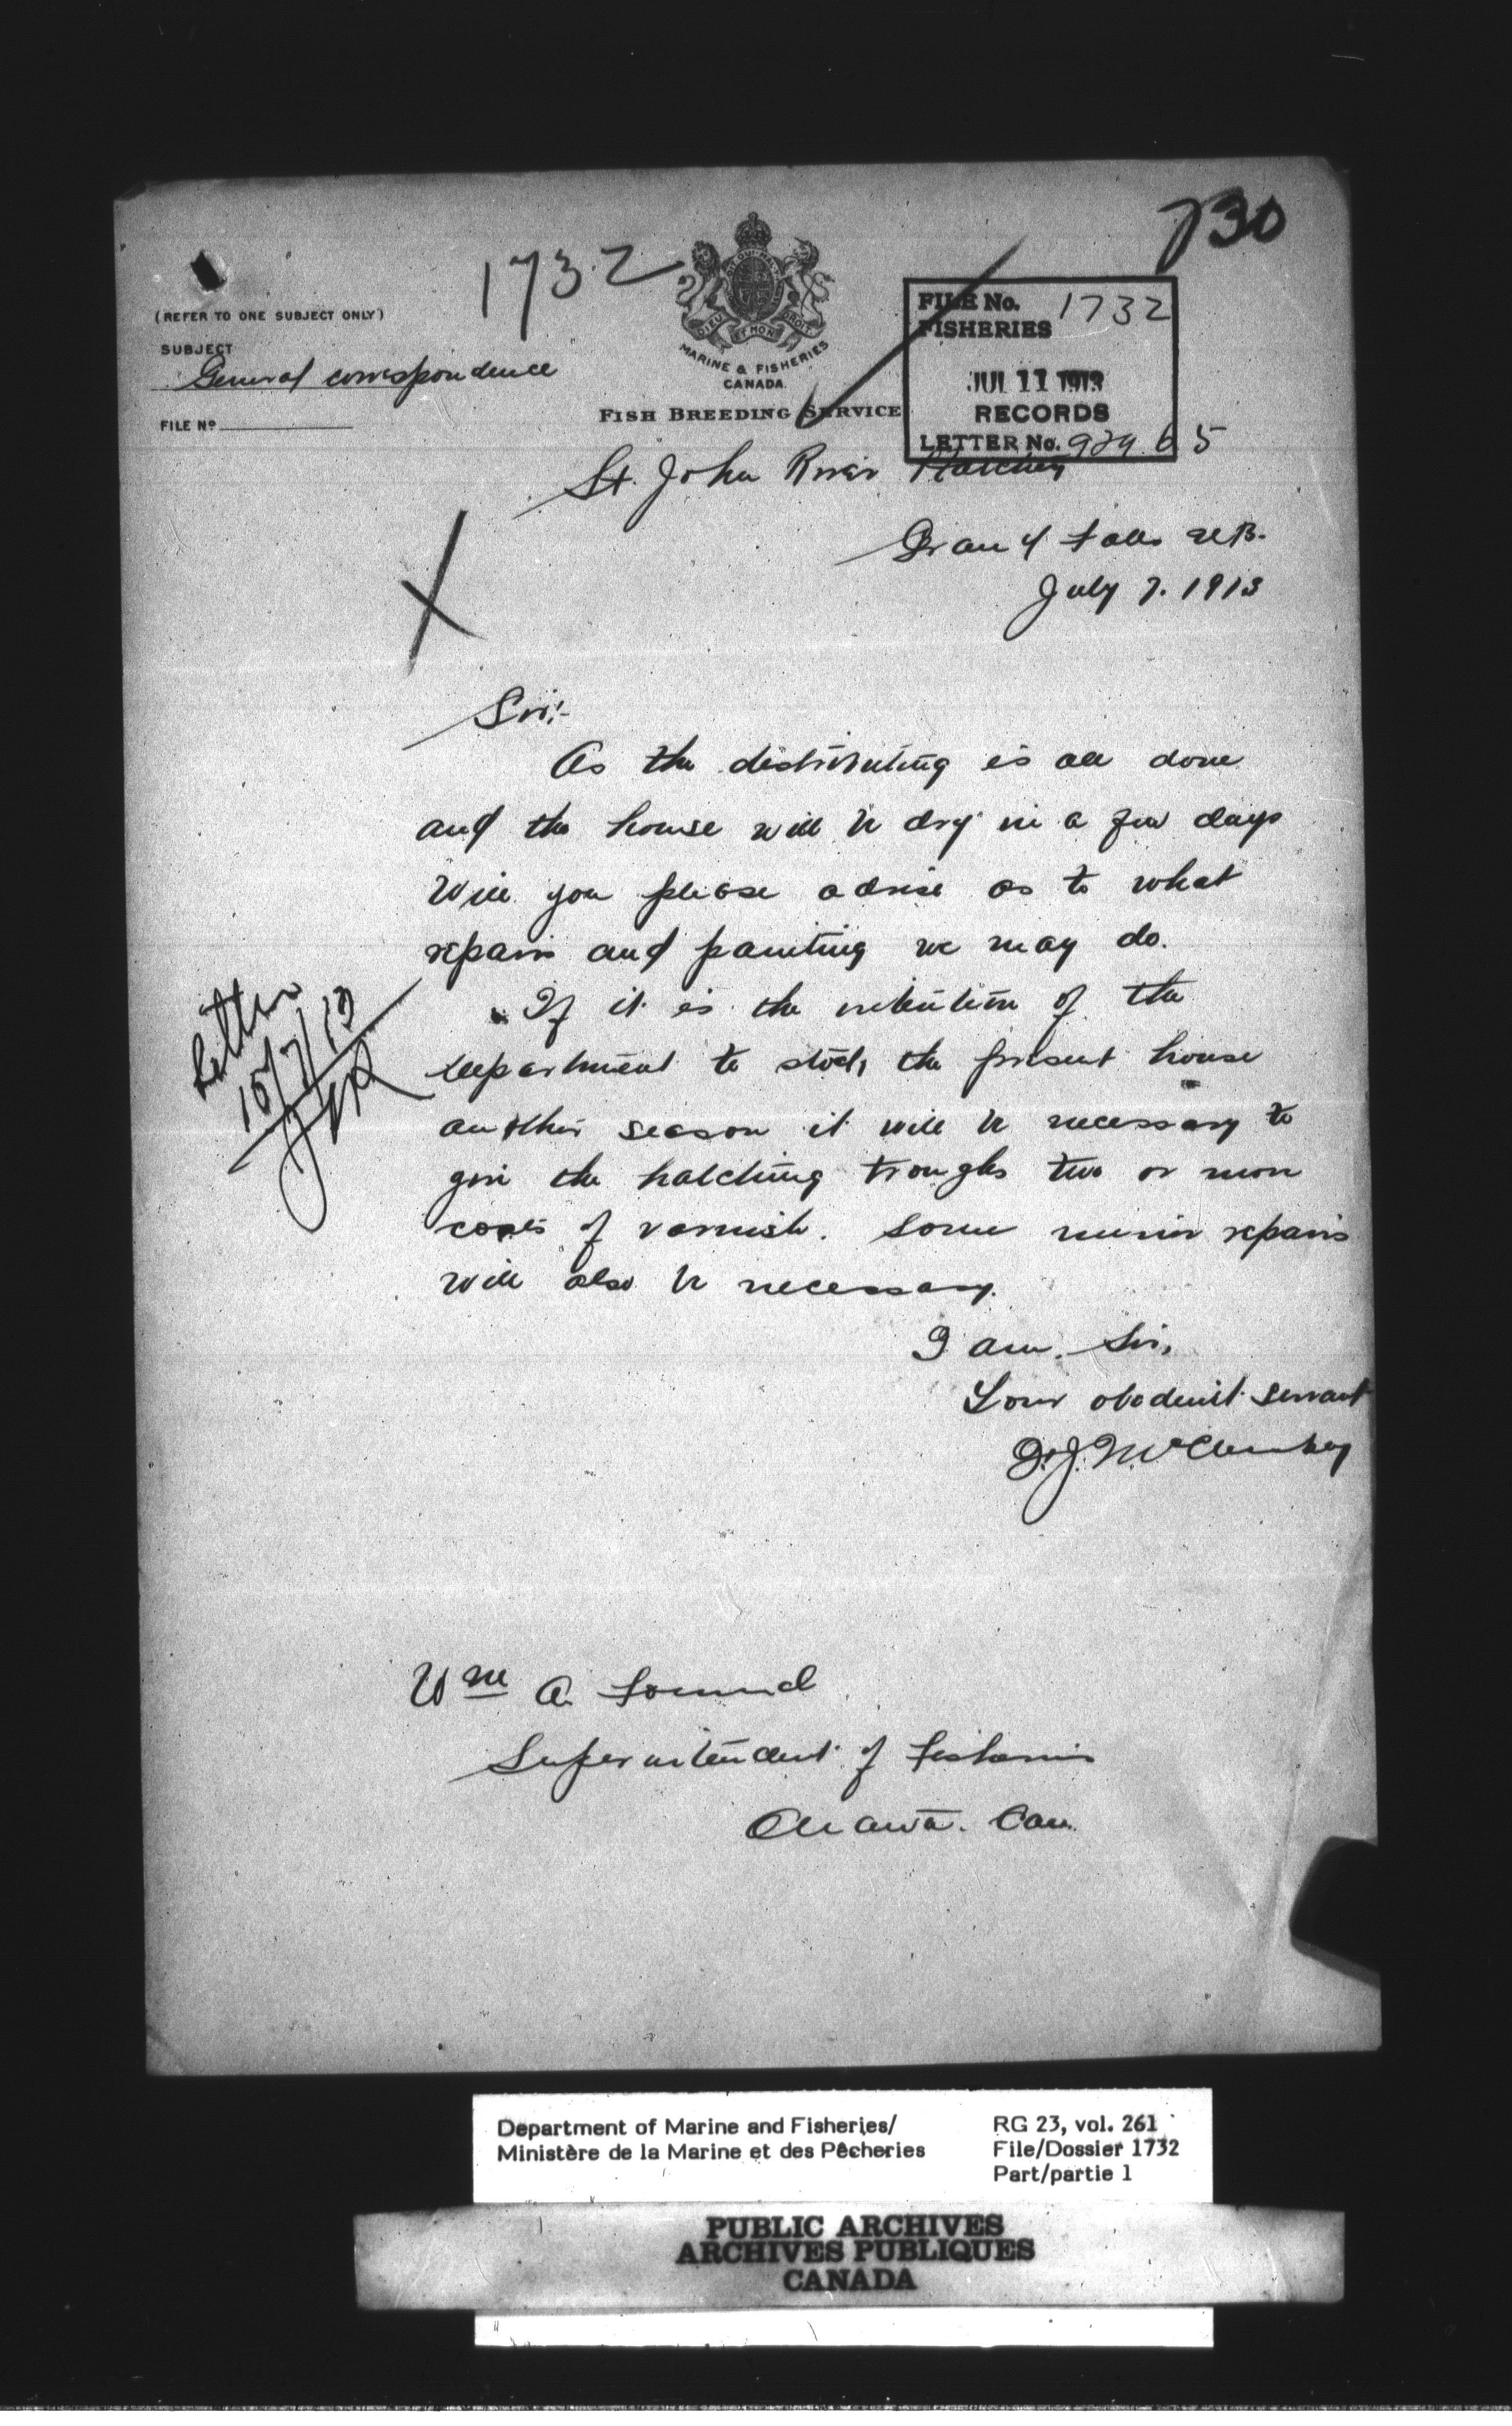 730
1732
(REFER TO ONE SUBJECT ONLY)
SUBJECT
General correspondence
FILE No
DIEU ET MON DROIT
MARINE & FISHERIES
CANADA.
FISH BREEDING SERVICE
FILE No. 1732
FISHERIES
JUL 11 1913
RECORDS
LETTER No.
St. John River Hatchery
Grand Falls N.B.
July 7. 1913
Sir:-
As the distributing is all done
and the house will be dry in a few days
Will you please advise as to what
repairs and painting we may do.
If it is the intention of the
department to stock the present house
another season it will be necessary to
give the hatching troughs two or more
coats of varnish. Some minor repairs
will also be necessary.
Letter
15/7/13
I am, Sir,
Your obedient servant
McCluskey
Wm A. Found
Superintendent of Fisheries
Ottawa. Can.
Department of Marine and Fisheries/
Ministère de la Marine et des Pêcheries
RG 23, vol. 261
File/Dossier 1732
Part/partie 1
PUBLIC ARCHIVES
ARCHIVES PUBLIQUES
CANADA